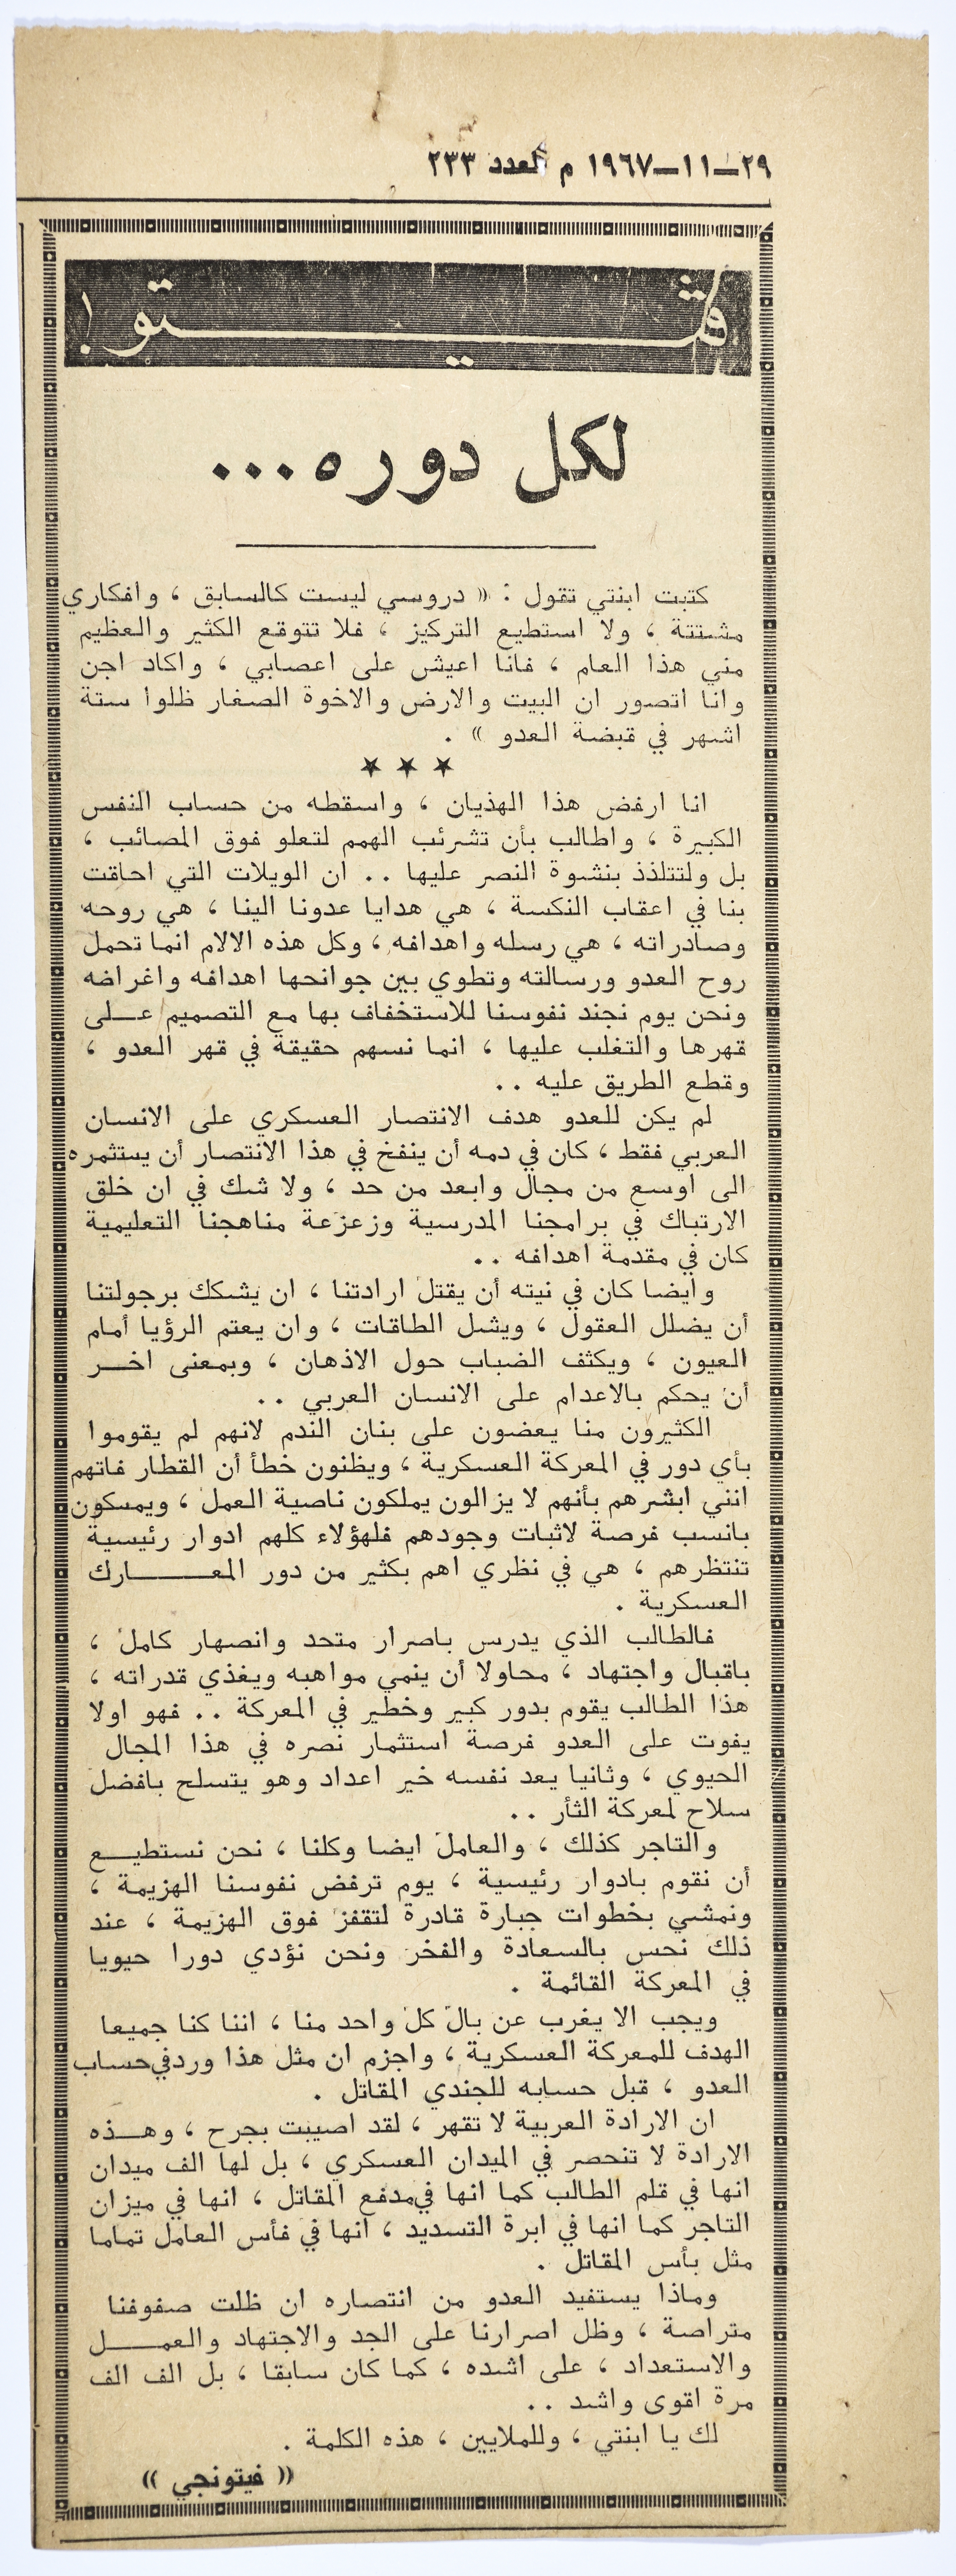 ٢٩—١١—١٩٦٧ م العدد ٢٣٣
ڤيتو !
لكل دوره ...
كتبت ابنتي تقول : « دروسي ليست كالسابق ، وافكاري
مشتتة ، ولا استطيع التركيز ، فلا تتوقع الكثير والعظيم
مني هذا العام ، فانا اعيش على اعصابي ، واكاد اجن
وانا اتصور ان البيت والارض والاخوة الصغار ظلوا ستة
اشهر في قبضة العدو » .
★ ★ ★
انا ارفض هذا الهذيان ، واسقطه من حساب النفس
الكبيرة ، واطالب بأن تشرئب الهمم لتعلو فوق المصائب ،
بل ولتتلذذ بنشوة النصر عليها .. ان الويلات التي احاقت
بنا في اعقاب النكسة ، هي هدايا عدونا الينا ، هي روحه
وصادراته ، هي رسله واهدافه ، وكل هذه الالام انما تحمل
روح العدو ورسالته وتطوي بين جوانحها اهدافه واغراضه
ونحن يوم نجند نفوسنا للاستخفاف بها مع التصميم عــلى
قهرها والتغلب عليها ، انما نسهم حقيقة في قهر العدو ،
وقطع الطريق عليه ..
لم يكن للعدو هدف الانتصار العسكري على الانسان
العربي فقط ، كان في دمه أن ينفخ في هذا الانتصار أن يستثمره
الى اوسع من مجال وابعد من حد ، ولا شك في ان خلق
الارتباك في برامجنا المدرسية وزعزعة مناهجنا التعليمية
كان في مقدمة اهدافه ..
وايضا كان في نيته أن يقتل ارادتنا ، ان يشكك برجولتنا
أن يضلل العقول ، ويشل الطاقات ، وان يعتم الرؤيا أمام
العيون ، ويكثف الضباب حول الاذهان ، وبمعنى اخــر
أن يحكم بالاعدام على الانسان العربي ..
الكثيرون منا يعضون على بنان الندم لانهم لم يقوموا
بأي دور في المعركة العسكرية ، ويظنون خطأ أن القطار فاتهم
انني ابشرهم بأنهم لا يزالون يملكون ناصية العمل ، ويمسكون
بانسب فرصة لاثبات وجودهم فلهؤلاء كلهم ادوار رئيسية
تنتظرهم ، هي في نظري اهم بكثير من دور المعـــــارك
العسكرية .
فالطالب الذي يدرس باصرار متحد وانصهار كامل ،
باقبال واجتهاد ، محاولا أن ينمي مواهبه ويغذي قدراته ،
هذا الطالب يقوم بدور كبير وخطير في المعركة .. فهو اولا
يفوت على العدو فرصة استثمار نصره في هذا المجال
الحيوي ، وثانيا يعد نفسه خير اعداد وهو يتسلح بافضل
سلاح لمعركة الثأر ..
والتاجر كذلك ، والعامل ايضا وكلنا ، نحن نستطيــع
أن نقوم بادوار رئيسية ، يوم ترفض نفوسنا الهزيمة ،
ونمشي بخطوات جبارة قادرة لتقفز فوق الهزيمة ، عند
ذلك نحس بالسعادة والفخر ونحن نؤدي دورا حيويا
في المعركة القائمة .
ويجب الا يغرب عن بال كل واحد منا ، اننا كنا جميعا
الهدف للمعركة العسكرية ، واجزم ان مثل هذا ورد في حساب
العدو ، قبل حسابه للجندي المقاتل .
ان الارادة العربية لا تقهر ، لقد اصيبت بجرح ، وهــذه
الارادة لا تنحصر في الميدان العسكري ، بل لها الف ميدان
انها في قلم الطالب كما انها في مدفع المقاتل ، انها في ميزان
التاجر كما انها في ابرة التسديد ، انها في فأس العامل تماما
مثل بأس المقاتل .
وماذا يستفيد العدو من انتصاره ان ظلت صفوفنا
متراصة ، وظل اصرارنا على الجد والاجتهاد والعمــــل
والاستعداد ، على اشده ، كما كان سابقا ، بل الف الف
مرة اقوى واشد ..
لك يا ابنتي ، وللملايين ، هذه الكلمة .
« فيتونجي »